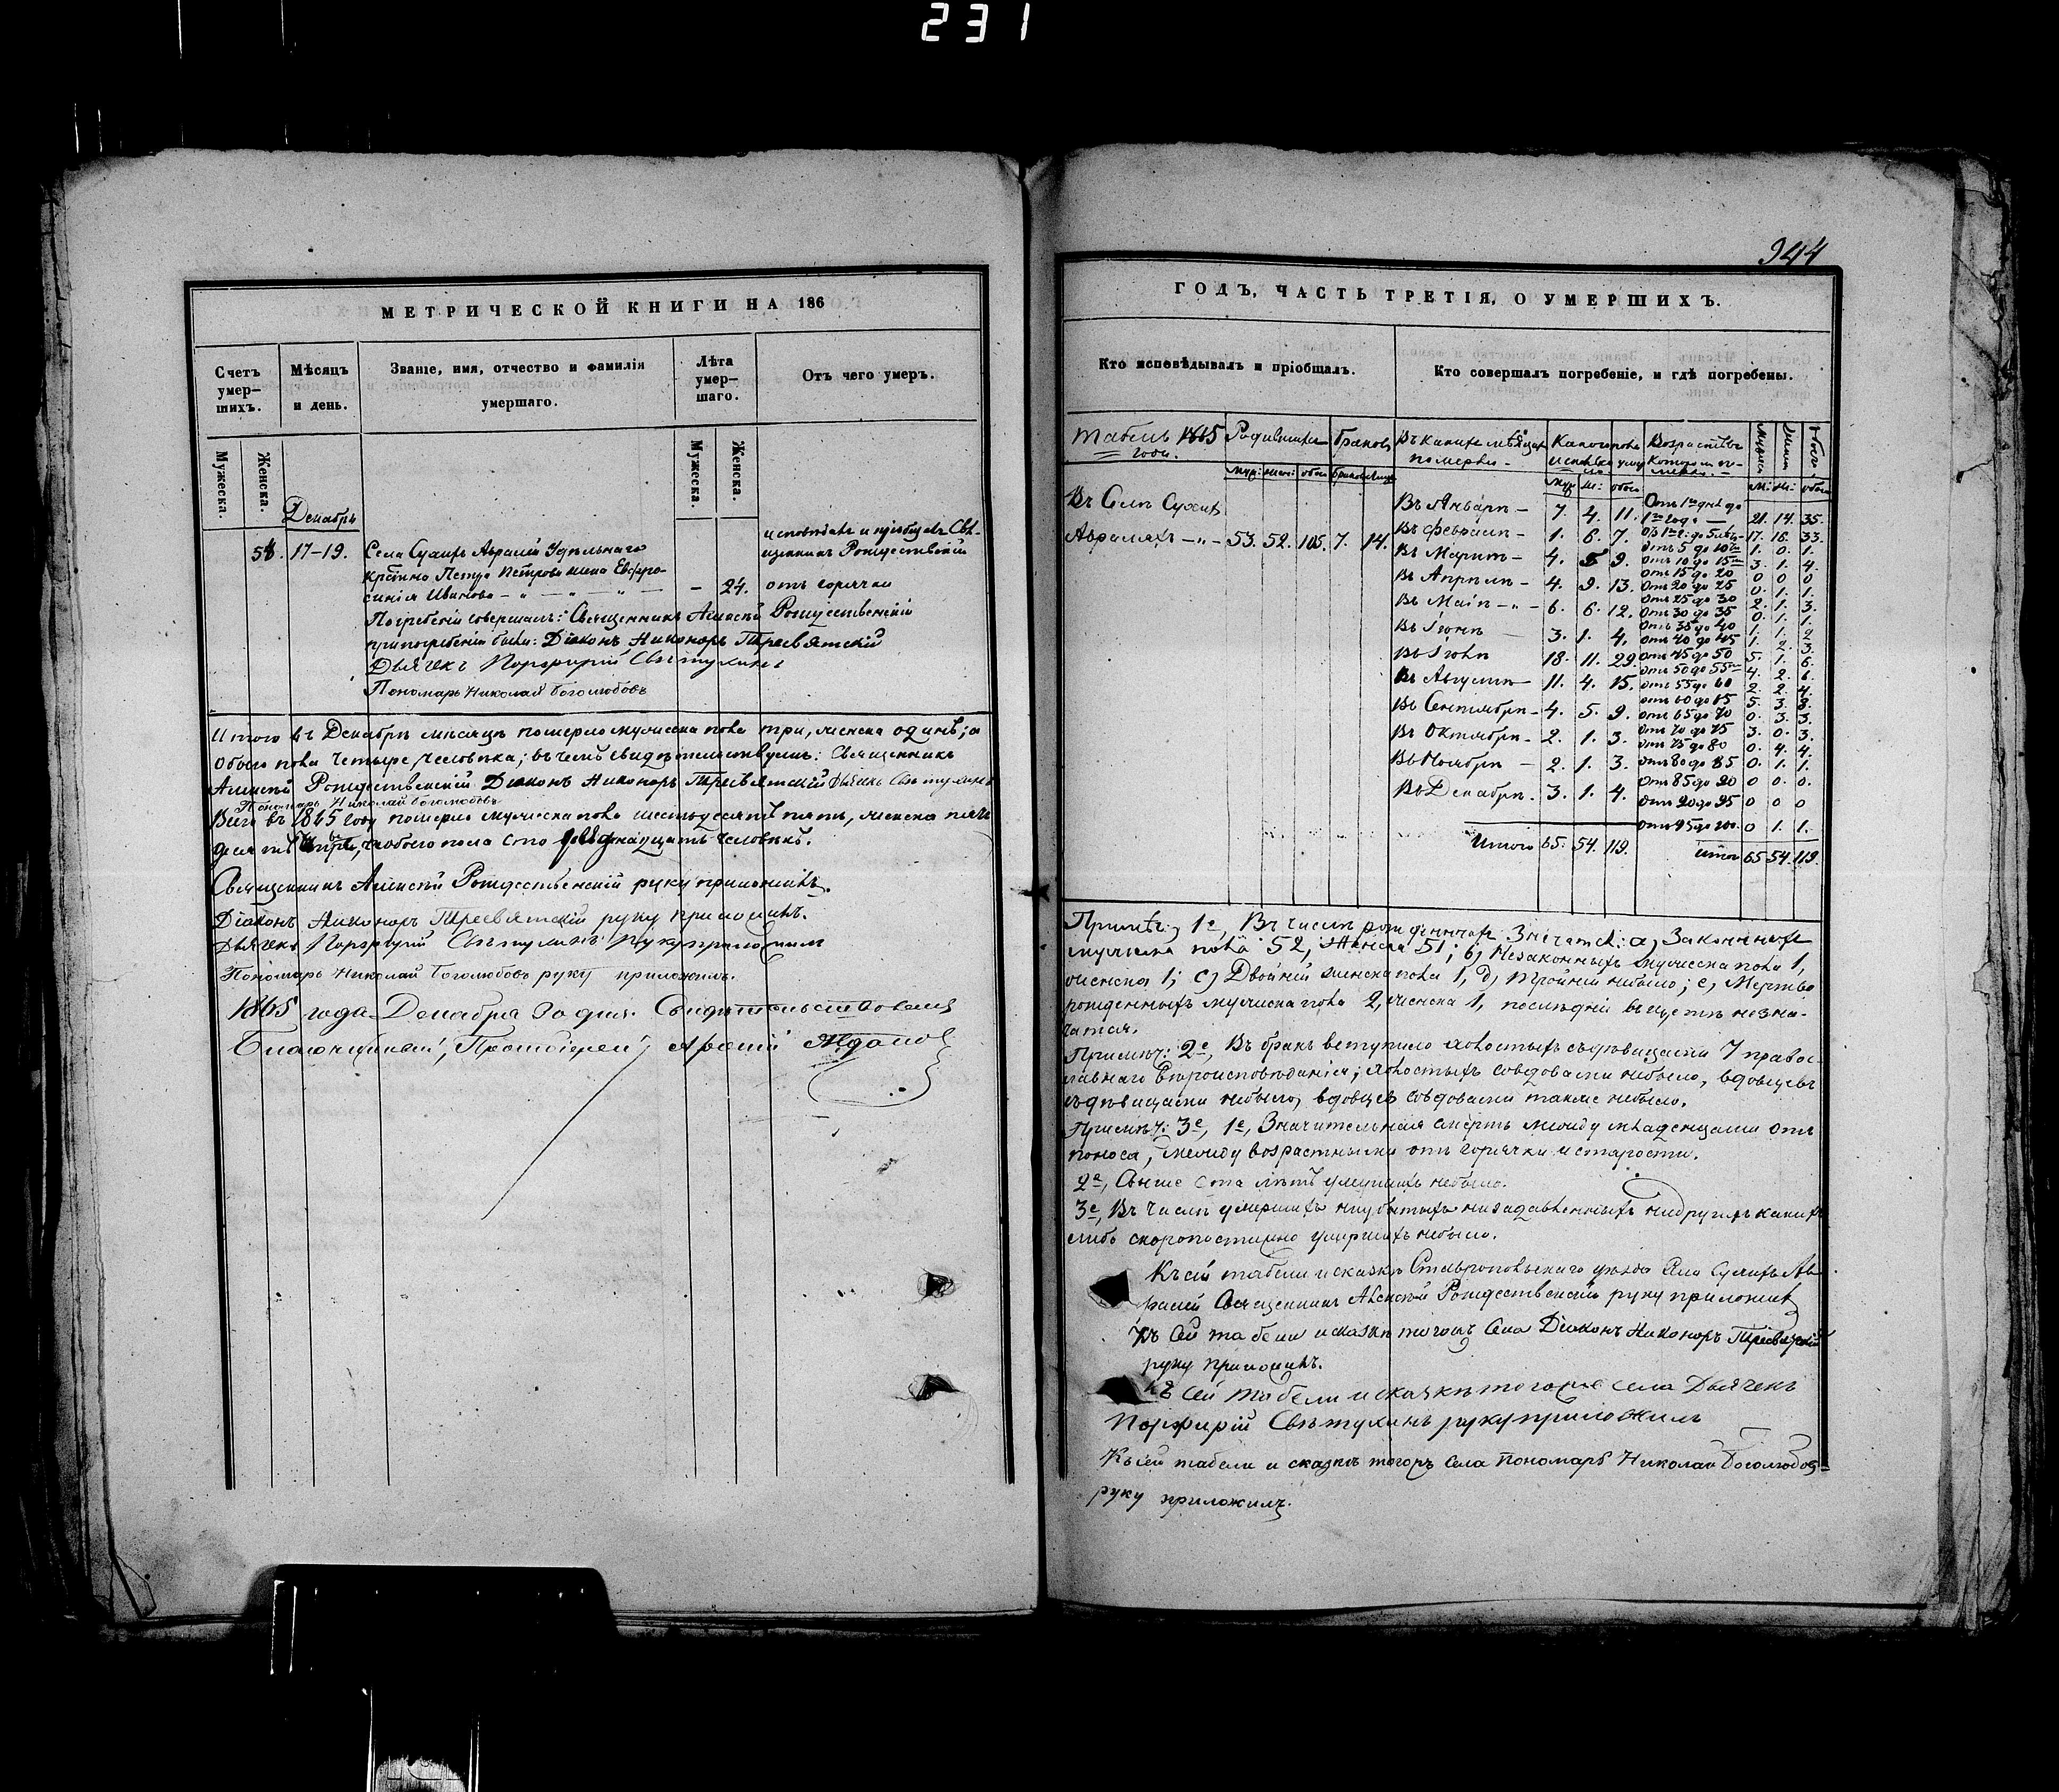 231
944
МЕТРИЧЕСКОЙ КНИГИ НА 186
Счетъ умер-шихъ.
Мѣсяцъ и день.
Званіе, имя, отчество и фамилія умершаго.
Лѣта умер-шаго.
Отъ чего умеръ.
Мужеска.
Женска.
Мужеска.
Женска.
Декабрь
исповѣдалъ и пріобщалъ Свя-
54. 17-19. Села Сухихъ Авралей Удѣльнаго щенникъ Рождественскій
крѣстьянина Петра Петрова жена Евфро-
синія Иванова - 24. отъ горячки
Погребеніе совершалъ: Священникъ Алексѣй Рождественскій
при погребеніи были: Діаконъ Никоноръ Тресвятскій
Дьячекъ Порфирій Свѣтухинъ
Пономарь Николай Боголюбовъ
Итого въ Декабрѣ мѣсяцѣ померло мужеска пола три, женска одинъ; а
обоего пола четыре человѣка; въ чемъ свидѣтельствуемъ: Священникъ
Алексѣй Рождественскій Діаконъ Никоноръ Тресвятскій Дьячекъ Свѣтухинъ
Пономарь Николай Боголюбовъ
Всего въ 1865 году померло мужеска пола шестьдесятъ пять, женска пять
десятъ четыре, а обоего пола сто девятнадцать человѣкъ.
Священникъ Алексѣй Рождественскій руку приложилъ.
Діаконъ Никоноръ Тресвятскій руку приложилъ.
Дьячекъ Порфирій Свѣтухинъ руку приложилъ
Пономарь Николай Боголюбовъ руку приложилъ.
1865 года Декабря 30 дня. Свидѣтельствовалъ
Благочинный, Протоіерей
ГОДЪ, ЧАСТЬ ТРЕТІЯ, О УМЕРШИХЪ.
Кто исповѣдывалъ и пріобщалъ.
Кто совершалъ погребеніе, и гдѣ погребены.
Табель 1865 года.
Родившихся
браковъ
Въ какихъ мѣсяцахъ померли
Какого пола и сколько умерло
Возрастъ въ которомъ померли
Въ Селѣ Сухихъ
Авраляхъ 53. 52. 105. 7. 14.
Въ Январѣ 7. 4. 11.
Въ Февралѣ 1. 6. 7.
Въ Мартѣ 4. 5 9.
Въ Апрѣлѣ 4. 9. 13.
Въ Маіѣ 6. 6. 12.
Въ Іюнѣ 3. 1. 4.
Въ Іюлѣ 18. 11. 29.
Въ Августѣ 11. 4. 15.
Въ Сентябрѣ 4. 5. 9.
Въ Октябрѣ 2. 1. 3.
Въ Ноябрѣ 2. 1. 3.
Въ Декабрѣ 3. 1. 4.
Итого 65. 54. 119.
Отъ 1го дня до
1го года 21. 14. 35.
Отъ 1го г. до 5 лѣтъ 17. 16. 33.
Отъ 5 до 10ти 1. 0. 1.
Отъ 10 до 15ти 3. 1. 4.
Отъ 15 до 20 0 0 0
Отъ 20 до 25 0. 1. 1.
Отъ 25 до 30 2. 1. 3.
Отъ 30 до 35 0. 1. 1.
Отъ 35 до 40 1. 1. 2
Отъ 40 до 45 1. 2. 3.
Отъ 45 до 50 5. 1. 6.
Отъ 50 до 55ти 4. 2. 6.
Отъ 55 до 60 2. 2. 4.
Отъ 60 до 65 5. 3. 8.
Отъ 65 до 70 0. 3. 3.
Отъ 70 до 75 3. 0. 3.
Отъ 75 до 80 0. 4. 4.
Отъ 80 до 85 0. 1. 1.
Отъ 85 до 90 0 0. 0.
Отъ 90 до 95 0 0 0
Отъ 95 до 100. 0 1. 1.
Итого 65 54. 119.
Примѣч: 1е, Въ числѣ рожденныхъ значатся: а) Законныхъ
мужеска пола 52, женска 51; b) Незаконныхъ мужеска пола 1,
женска 1; c) Двойни женска пола 1, d) тройни небыло; e) Мертво
рожденныхъ мужеска пола 2, женска 1, послѣдніе въ щетъ незна-
чатся.
Примѣч: 2е, Въ бракъ вступило холостыхъ съ дѣвицами 7 правос-
лавнаго Вѣроисповѣданія; холостыхъ со вдовами небыло, вдовцевъ
съ дѣвицами небыло, вдовцевъ со вдовами также небыло.
Примѣч: 3е, 1е, Значительная смерть между младенцами отъ
поноса, между возрастными отъ горячки и старости.
2е, Свыше ста лѣтъ умершихъ небыло.
3е, Въ числѣ умершихъ ни убитыхъ ни задавленныхъ ни другихъ какихъ
либо скоропостижно умершихъ небыло.
Къ сей табели и сказкѣ Ставропольскаго уѣзда Села Сухихъ Ав-
ралей Священникъ Алексѣй Рождественскій руку приложилъ
Къ сей табели и сказкѣ тогожъ Села Діаконъ Никоноръ Тресвятскій
руку приложилъ.
Къ сей табели и сказкѣ тогоже села Дьячекъ
Порфирій Свѣтухинъ руку приложилъ
Къ сей табели и сказкѣ тогожъ села пономарь Николай Боголюбовъ
руку приложилъ.